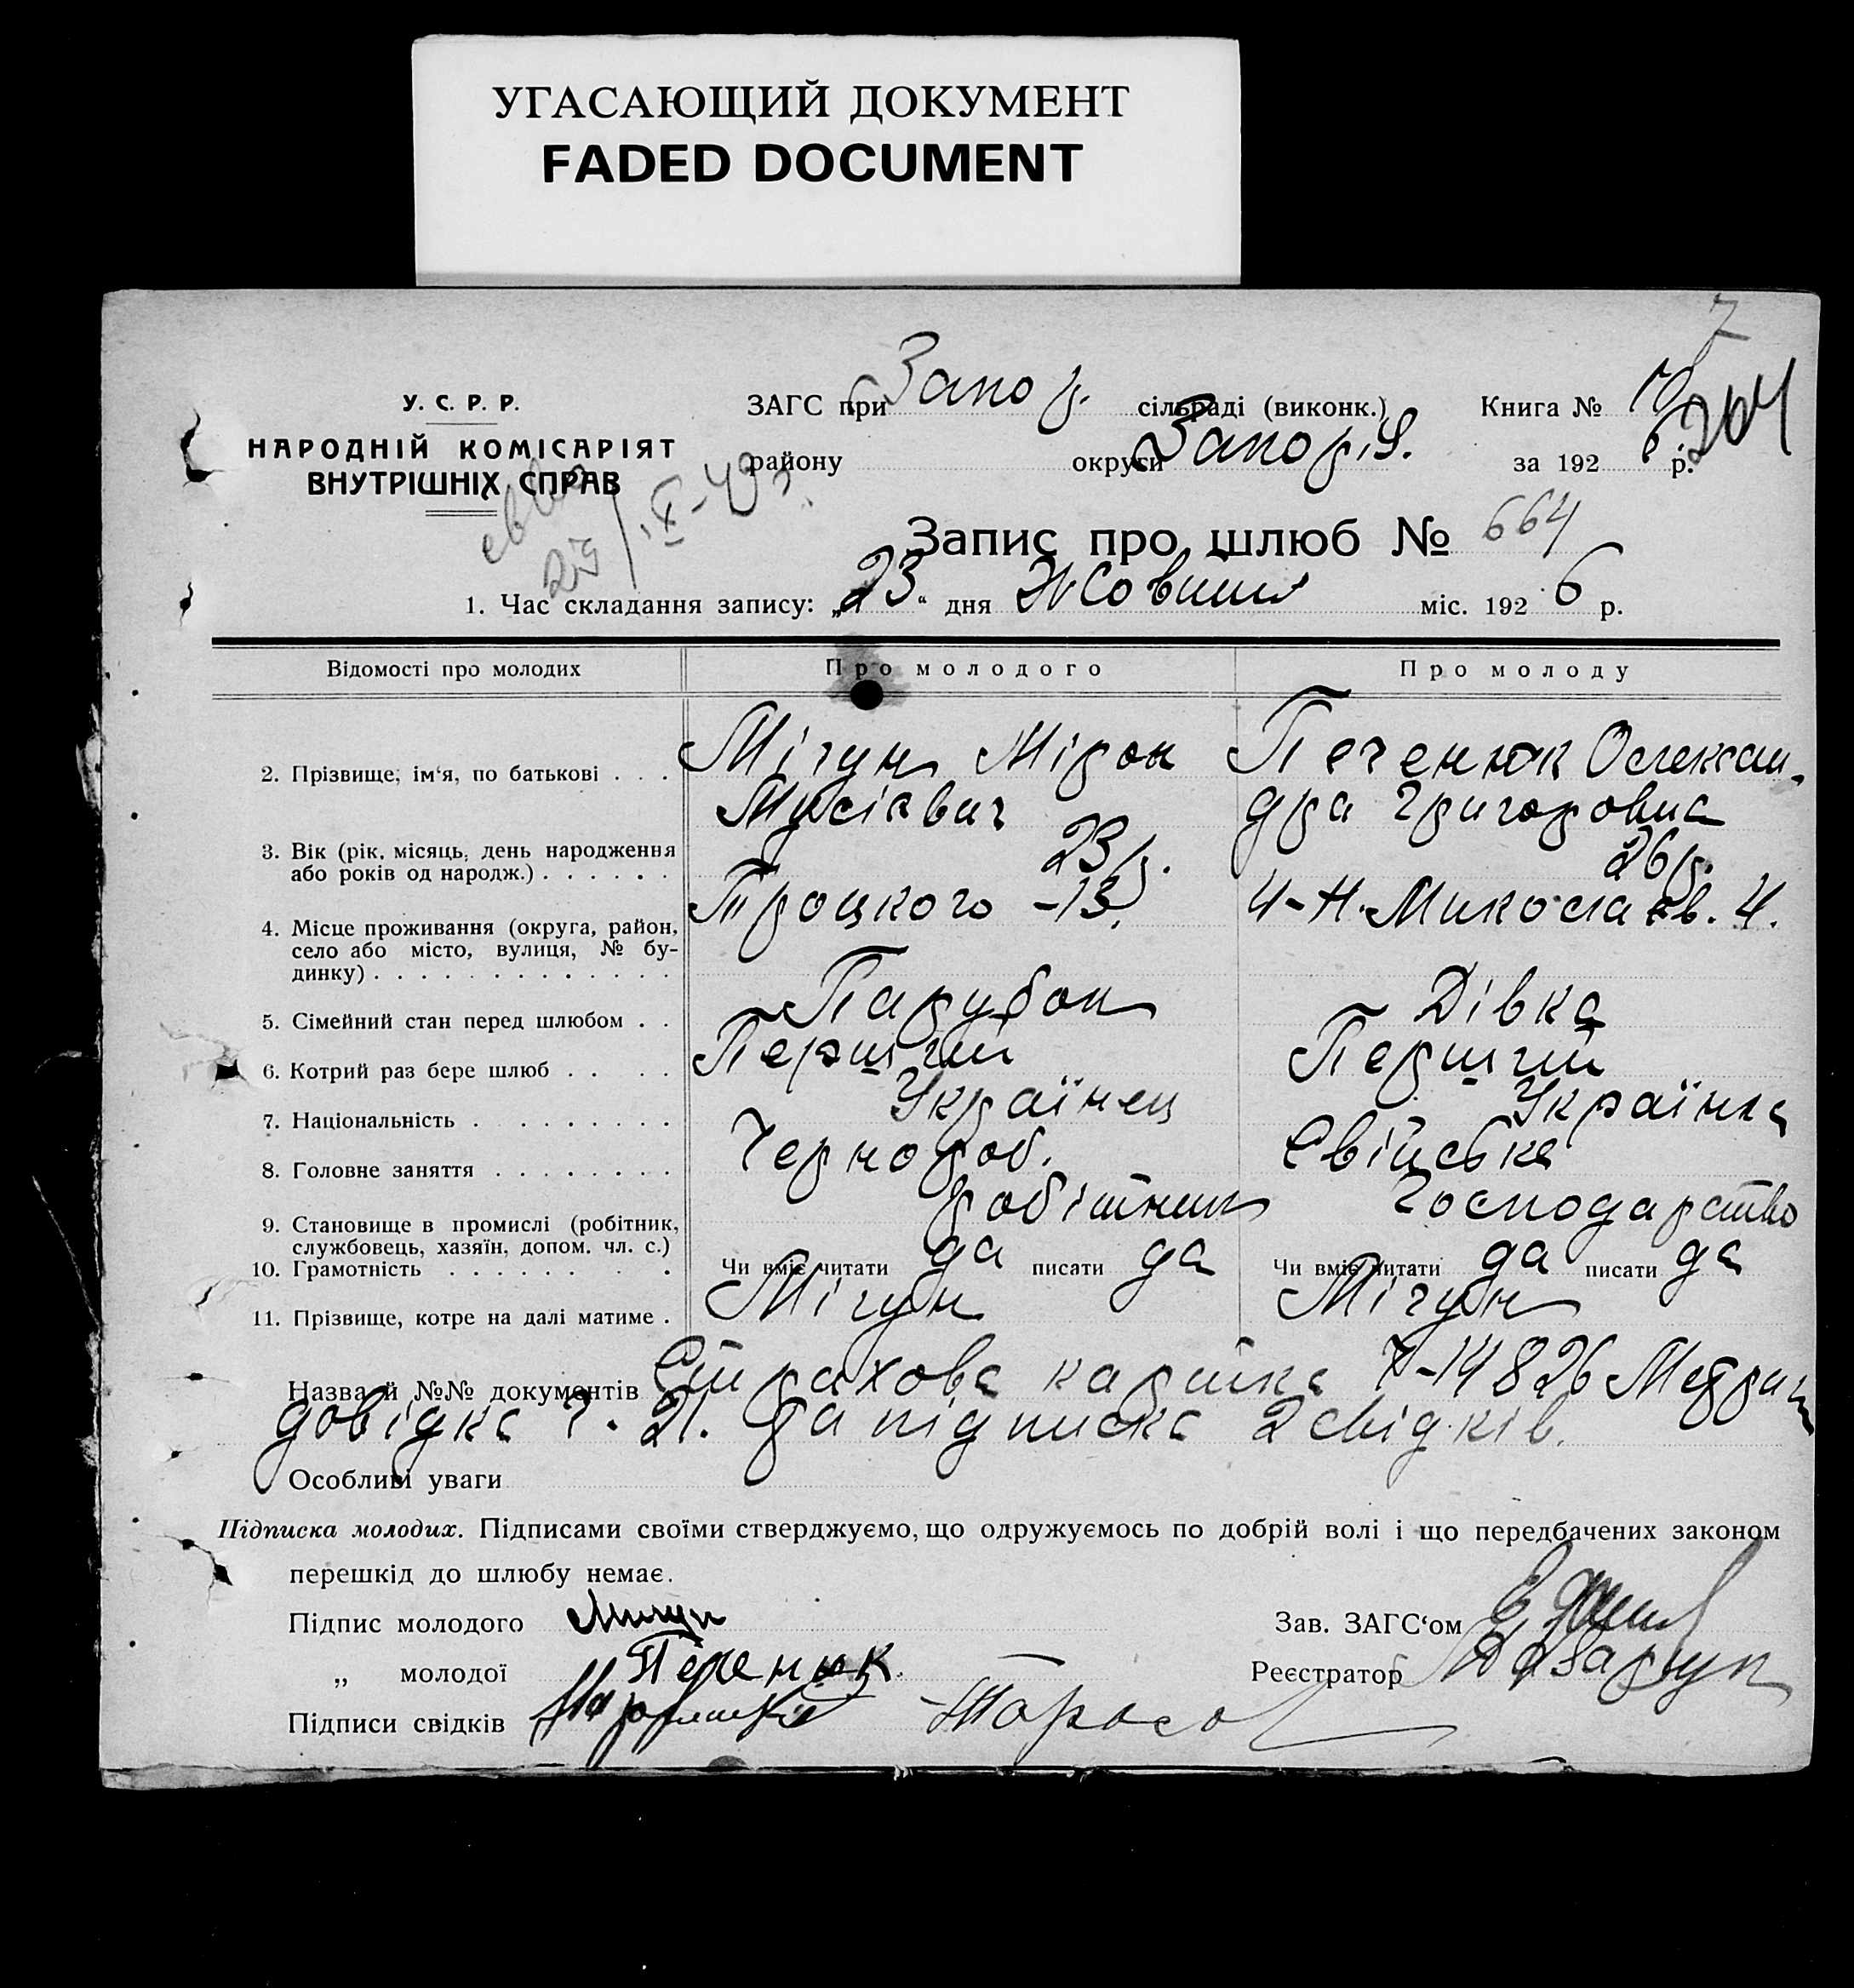 УГАСАЮЩИЙ ДОКУМЕНТ
FADED DOCUMENT
7
У. С. Р. Р.
НАРОДНІЙ КОМІСАРІЯТ
ВНУТРІШНІХ СПРАВ
ЗАГС при Запор. сільраді (виконк.) Книга № 10
204
району округи Запоріз. за 192 6 р.
25/IX-49 г.
Запис про шлюб № 664
1. Час складання запису: „23“ дня Жовтня міс. 192 6 р.
Відомості про молодих Про молодого Про молоду
2. Прізвище, ім‘я, по батькові . . . Мігун Мірон Печенюк Олексан-
Мусіевич дра Григоровна
3. Вік (рік, місяць, день народження
або років од народж.) . . . . . . 23 р. 26 р.
4. Місце проживання (округа, район, Троцкого - 13. 4-Н. Миколаєв. 4.
село або місто, вулиця, № бу-
динку) . . . . . . . . . . . . .
5. Сімейний стан перед шлюбом . . Парубок Дівка
6. Котрий раз бере шлюб . . . . Перший Перший
7. Національність . . . . . . . . . Українец Українка
8. Головне заняття . . . . . . . . Чернороб. Свійське
9. Становище в промислі (робітник, робітник господарство
службовець, хазяїн, допом. чл. с.)
10. Грамотність . . . . . . . . Чи вміє читати да писати да Чи вміє читати да писати да
11. Прізвище, котре на далі матиме . Мігун Мігун
Назва й №№ документів Страхова картка 7-14826 Метрич
довідка ч. 21. та підписка 2 свідків.
Особливі уваги
Підписка молодих. Підписами своїми стверджуємо, що одружуємось по добрій волі і що передбачених законом
перешкід до шлюбу немає.
Підпис молодого Мигун Зав. ЗАГС‘ом
„ молодої Печенюк Реєстратор
Підписи свідків Тарасо